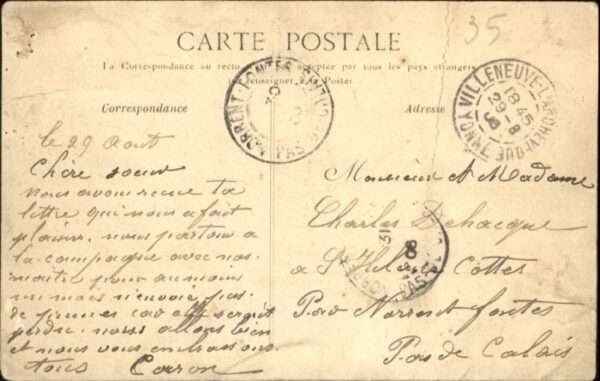 35
CARTE POSTALE
La Correspondance au recto n'est pas acceptée par tous les pays étrangers
(Se renseigner à la Poste)
Correspondance
Adresse
NORRENT-FONTES PAS-DE-CALAIS
VILLENEUVE-L'ARCHEVEQUE YONNE
18 45
29-8
08
le 29 Août
Chère soeur
nous avons recue ta
lettre qui nous a fait
plaisir. nous partons a
la compagne avec nos
maitre pour au moin
un mois n'envoie pas
de prunes car elle serait
perdre. nous allons bien
et nous vous embrassons
tous Caron
Monsieur et Madame
Charles Dehacque
a St Hilaire Cottes
Par Norrent fontes
Pas de Calais
31
8